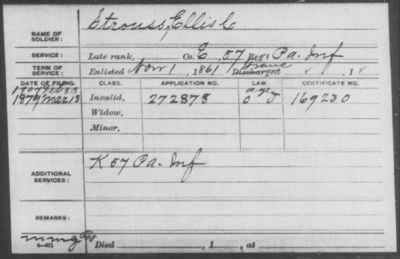 NAME OF SOLDIER: Strouss, Ellis C
SERVICE: Late rank, Co. E, 57 Reg't Pa. Inf
TERM OF SERVICE: Enlisted Nov 1, 1861 Discharged , 18
DATE OF FILING. CLASS. APPLICATION NO. LAW. CERTIFICATE NO.
1879 Mar 13 Invalid, 272878 169230
Widow,
Minor,
ADDITIONAL SERVICES: K 57 Pa. Inf
REMARKS:
Died , 1 , at